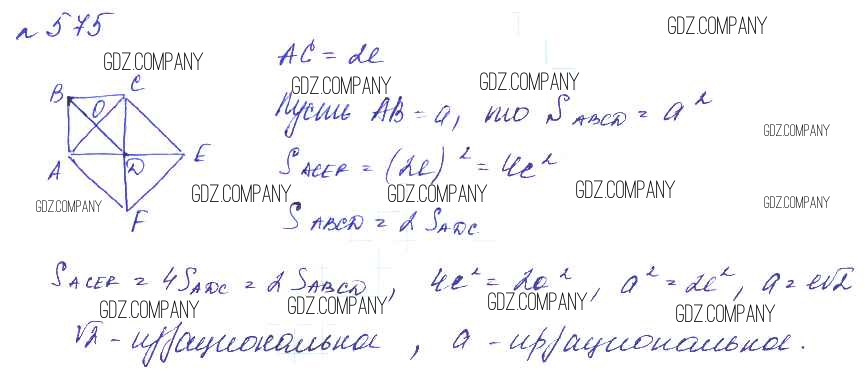 № 575
GDZ.COMPANY
AC = 2e
GDZ.COMPANY
GDZ.COMPANY
GDZ.COMPANY
B C
O
A D E
F
Пусть AB = a, то S ABCD = a²
GDZ.COMPANY
S ACEF = (2e)² = 4e²
GDZ.COMPANY
GDZ.COMPANY
GDZ.COMPANY
GDZ.COMPANY
GDZ.COMPANY
S ABCD = 2 S ADC
S ACEF = 4 S ADC = 2 S ABCD, 4e² = 2a², a² = 2e², a = e√2
GDZ.COMPANY
GDZ.COMPANY
GDZ.COMPANY
GDZ.COMPANY
√2 - иррациональное, a - иррациональное.